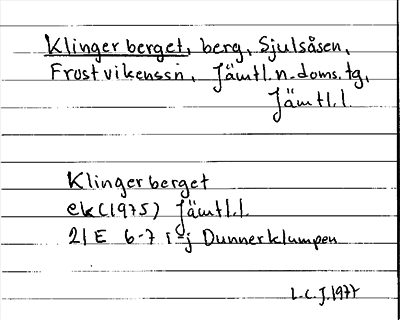 Klingerberget, berg, Sjulsåsen,
Frostvikenssn, Jämtl.n.doms.tg,
Jämtl.l.
Klingerberget
ek (1975) Jämtl.l.
21 E 6-7 i-j Dunnerklumpen
L.C.J. 1977